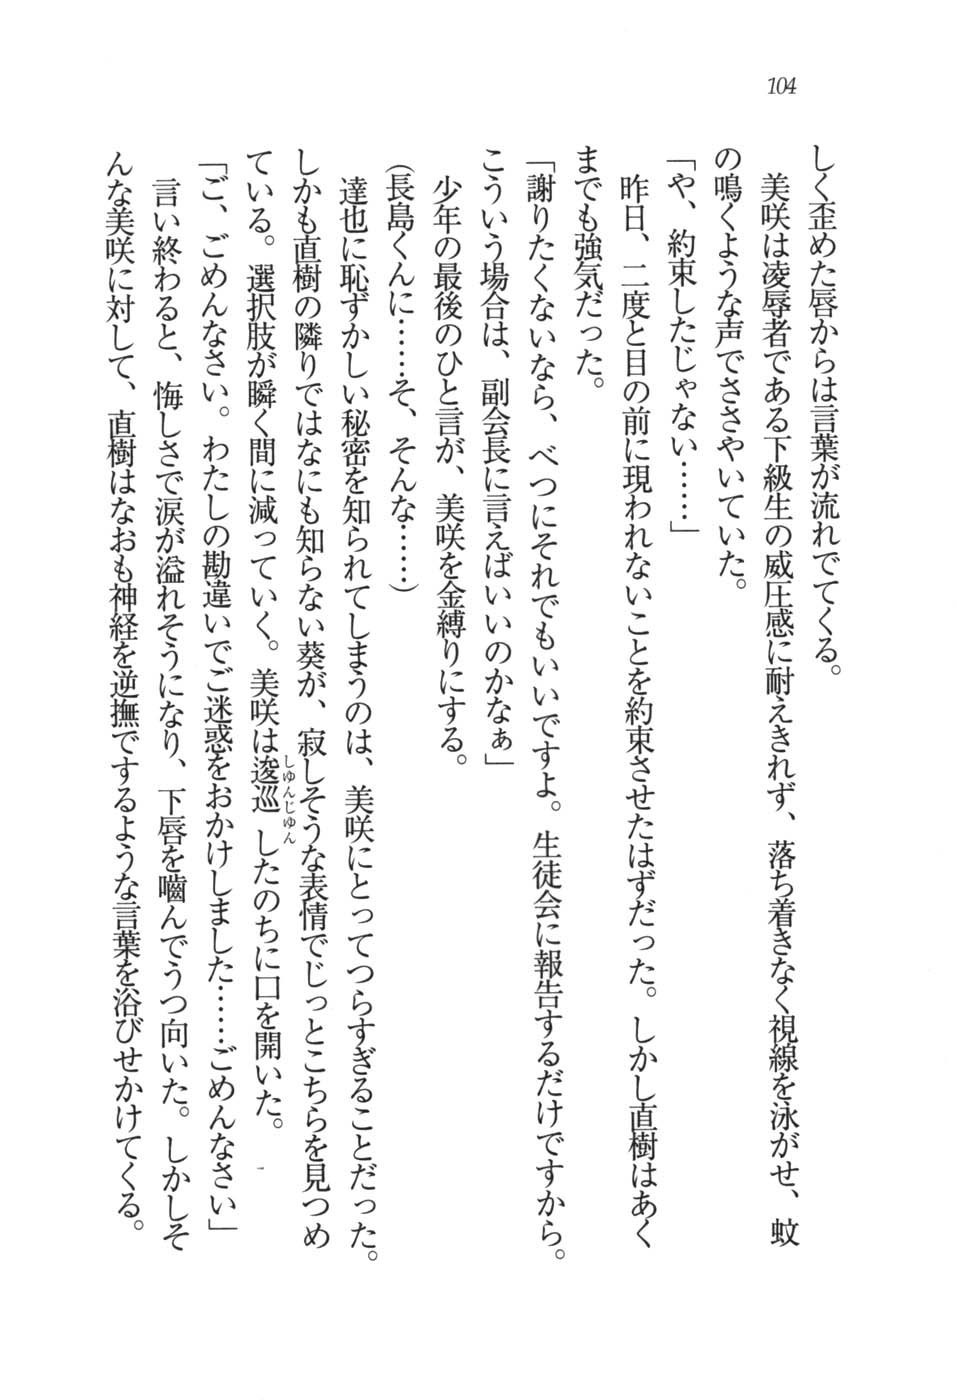 104
しく歪めた唇からは言葉が流れでてくる。
美咲は凌辱者である下級生の威圧感に耐えきれず、落ち着きなく視線を泳がせ、蚊
の鳴くような声でささやいていた。
「や、約束したじゃない……」
昨日、二度と目の前に現われないことを約束させたはずだった。しかし直樹はあく
までも強気だった。
「謝りたくないなら、べつにそれでもいいですよ。生徒会に報告するだけですから。
こういう場合は、副会長に言えばいいのかなぁ」
少年の最後のひと言が、美咲を金縛りにする。
(長島くんに……そ、そんな……)
達也に恥ずかしい秘密を知られてしまうのは、美咲にとってつらすぎることだった。
しかも直樹の隣りではなにも知らない葵が、寂しそうな表情でじっとこちらを見つめ
ている。選択肢が瞬く間に減っていく。美咲は逡巡しゆんじゆんしたのちに口を開いた。
「ご、ごめんなさい。わたしの勘違いでご迷惑をおかけしました……ごめんなさい」
言い終わると、悔しさで涙が溢れそうになり、下唇を嚙んでうつ向いた。しかしそ
んな美咲に対して、直樹はなおも神経を逆撫でするような言葉を浴びせかけてくる。